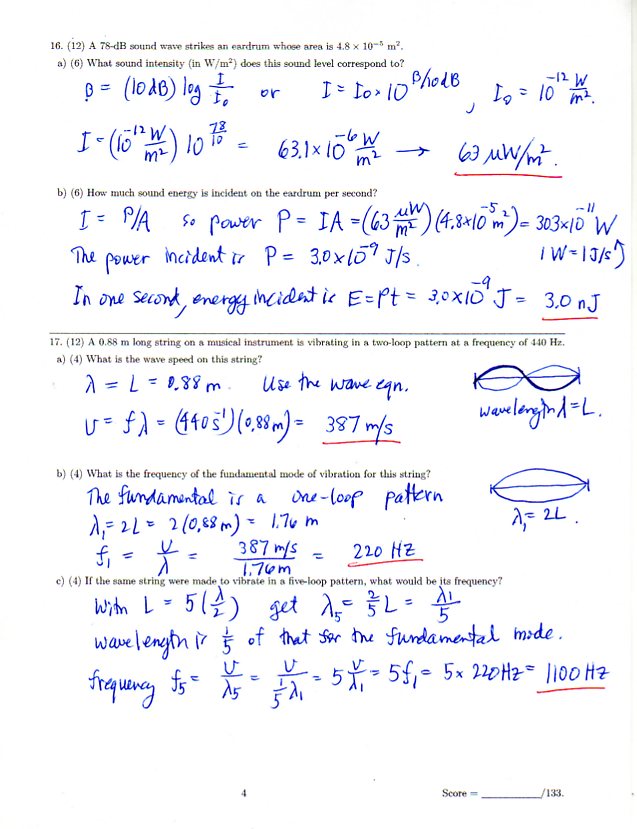 16. (12) A 78-dB sound wave strikes an eardrum whose area is 4.8 × 10⁻⁵ m².
a) (6) What sound intensity (in W/m²) does this sound level correspond to?
β = (10 dB) log I/I₀ or I = I₀ × 10^(β/10dB) , I₀ = 10⁻¹² W/m².
I = (10⁻¹² W/m²) 10^(78/10) = 63.1 × 10⁻⁶ W/m² → 63 μW/m².
b) (6) How much sound energy is incident on the eardrum per second?
I = P/A so power P = IA = (63 μW/m²)(4.8×10⁻⁵ m²) = 303×10⁻¹¹ W
The power incident is P = 3.0×10⁻⁹ J/s. 1 W = 1 J/s ↑
In one second, energy incident is E = Pt = 3.0×10⁻⁹ J = 3.0 nJ
17. (12) A 0.88 m long string on a musical instrument is vibrating in a two-loop pattern at a frequency of 440 Hz.
a) (4) What is the wave speed on this string?
λ = L = 0.88 m. Use the wave eqn.
wavelength λ = L.
v = fλ = (440 s⁻¹)(0.88 m) = 387 m/s
b) (4) What is the frequency of the fundamental mode of vibration for this string?
The fundamental is a one-loop pattern
λ₁ = 2L = 2(0.88 m) = 1.76 m
λ₁ = 2L.
f₁ = v/λ = 387 m/s / 1.76 m = 220 Hz
c) (4) If the same string were made to vibrate in a five-loop pattern, what would be its frequency?
With L = 5(λ/2) get λ₅ = 2/5 L = λ₁/5
wavelength is 1/5 of that for the fundamental mode.
frequency f₅ = v/λ₅ = v/(1/5 λ₁) = 5 v/λ₁ = 5f₁ = 5 × 220 Hz = 1100 Hz
4 Score = ________/133.